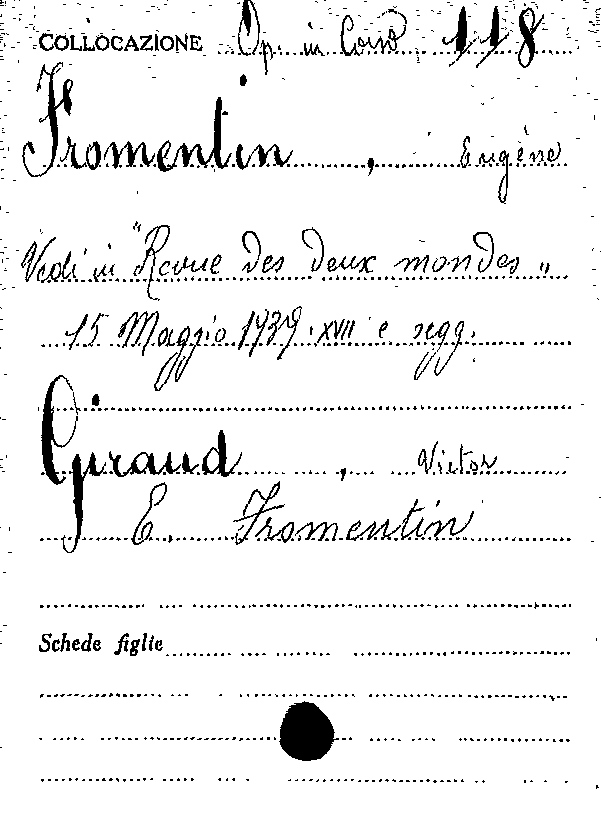 COLLOCAZIONE Op. in Cons 118
Fromentin, Eugène
Vedi in "Revue des deux mondes"
15 Maggio 1939.XVII e segg.
Giraud, Victor
E. Fromentin
Schede figlie